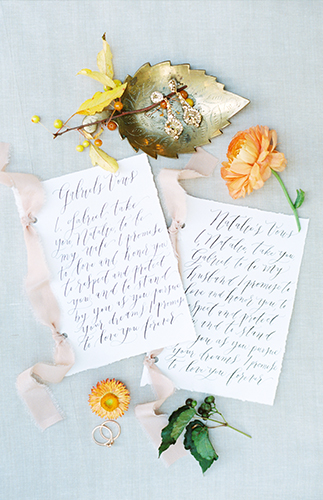 Gabriel's Vows
I, Gabriel, take
you, Natalie, to be
my wife. I promise
to love and honor you
to respect and protect
you and to stand
by you as you pursue
your dreams. I promise
to love you forever
Natalie's Vows
I, Natalie, take you
Gabriel to be my
husband. I promise to
love and honor you to
respect and protect
and to stand
by you as you pursue
your dreams. I promise
to love you forever